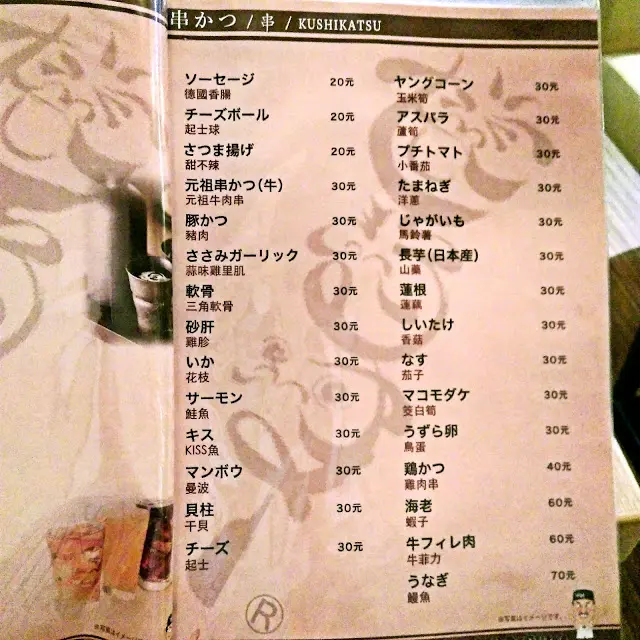 串かつ / 串 / KUSHIKATSU
ソーセージ 20元
德國香腸
チーズボール 20元
起士球
さつま揚げ 20元
甜不辣
元祖串かつ(牛) 30元
元祖牛肉串
豚かつ 30元
豬肉
ささみガーリック 30元
蒜味雞里肌
軟骨 30元
三角軟骨
砂肝 30元
雞胗
いか 30元
花枝
サーモン 30元
鮭魚
キス 30元
KISS魚
マンボウ 30元
曼波
貝柱 30元
干貝
チーズ 30元
起士
ヤングコーン 30元
玉米筍
アスパラ 30元
蘆筍
プチトマト 30元
小番茄
たまねぎ 30元
洋蔥
じゃがいも 30元
馬鈴薯
長芋(日本産) 30元
山藥
蓮根 30元
蓮藕
しいたけ 30元
香菇
なす 30元
茄子
マコモダケ 30元
茭白筍
うずら卵 30元
鳥蛋
鶏かつ 40元
雞肉串
海老 60元
蝦子
牛フィレ肉 60元
牛菲力
うなぎ 70元
鰻魚
※写真はイメージです。
R